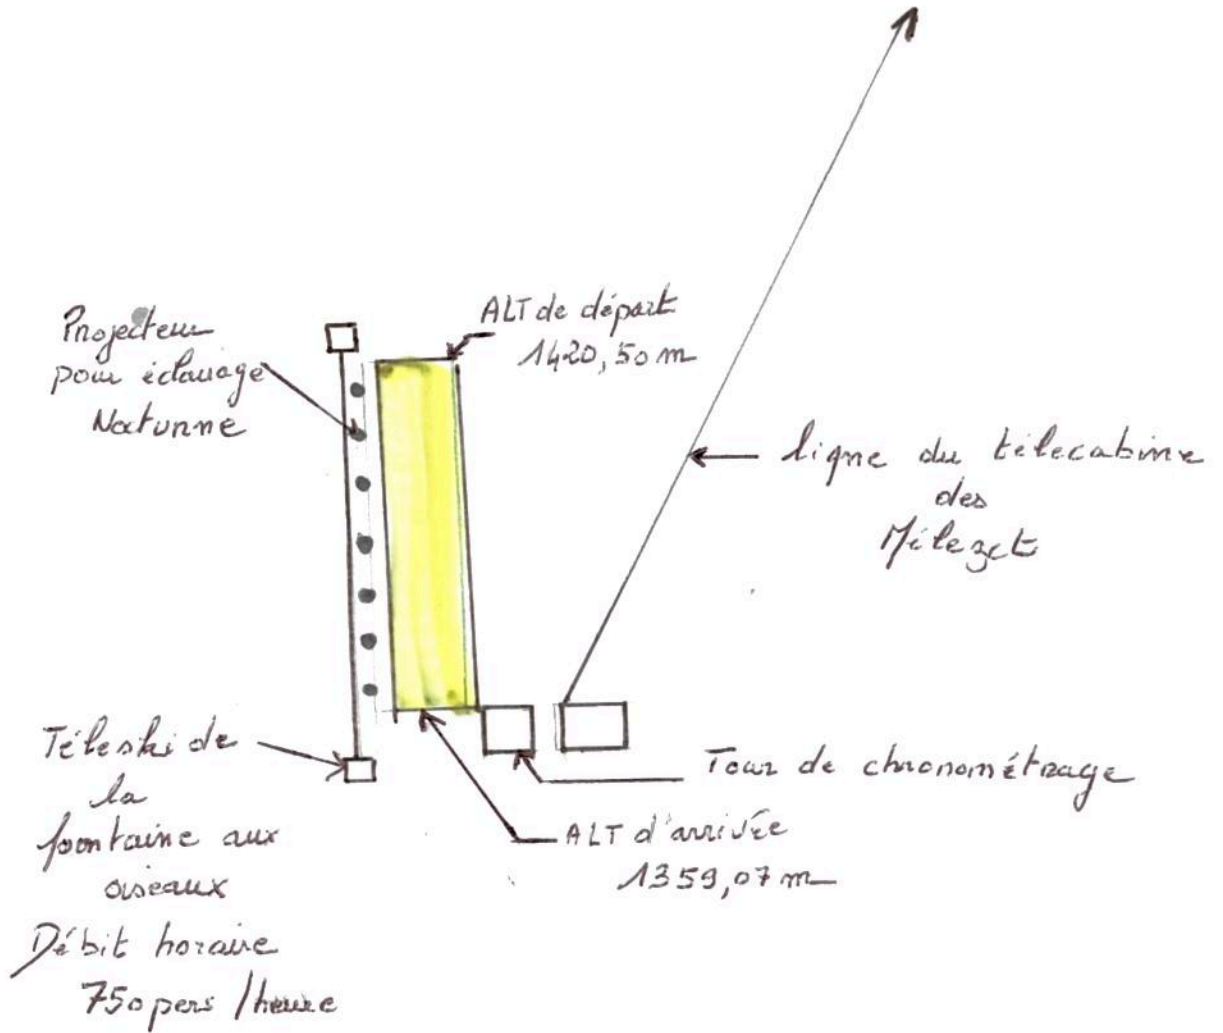 Projecteur
pour éclairage
Nocturne
ALT de départ
1420,50 m
ligne du télécabine
des
Mélezet
Téleski de
la
fontaine aux
oiseaux
Débit horaire
750 pers /heure
Tour de chronométrage
ALT d'arrivée
1359,07 m